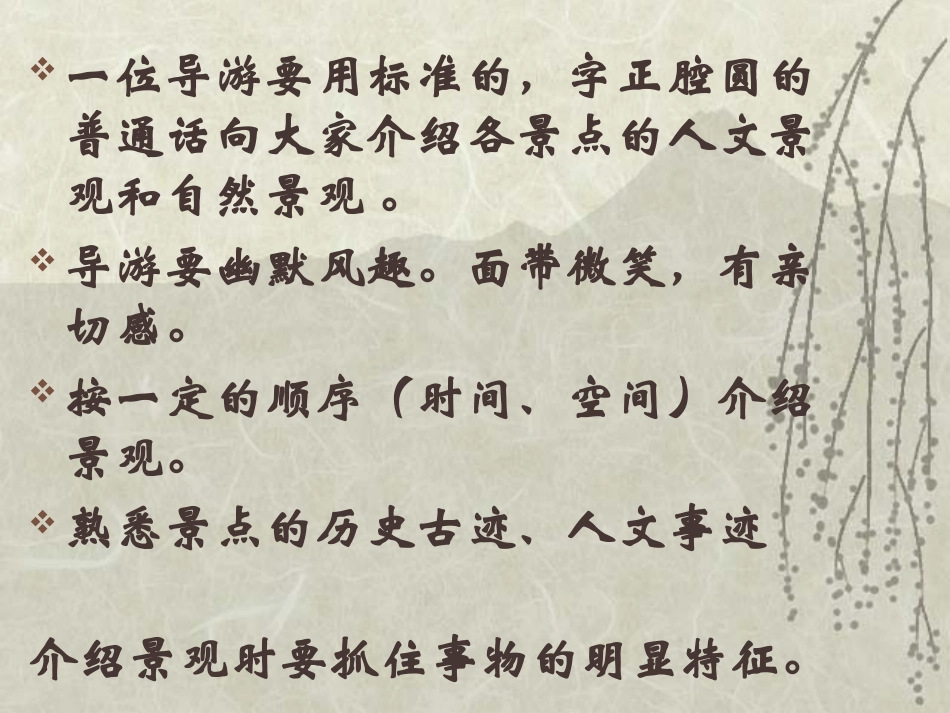 ❖ 一位导游要用标准的，字正腔圆的
普通话向大家介绍各景点的人文景
观和自然景观 。
❖ 导游要幽默风趣。面带微笑，有亲
切感。
❖ 按一定的顺序（时间、空间）介绍
景观。
❖ 熟悉景点的历史古迹、人文事迹
介绍景观时要抓住事物的明显特征。